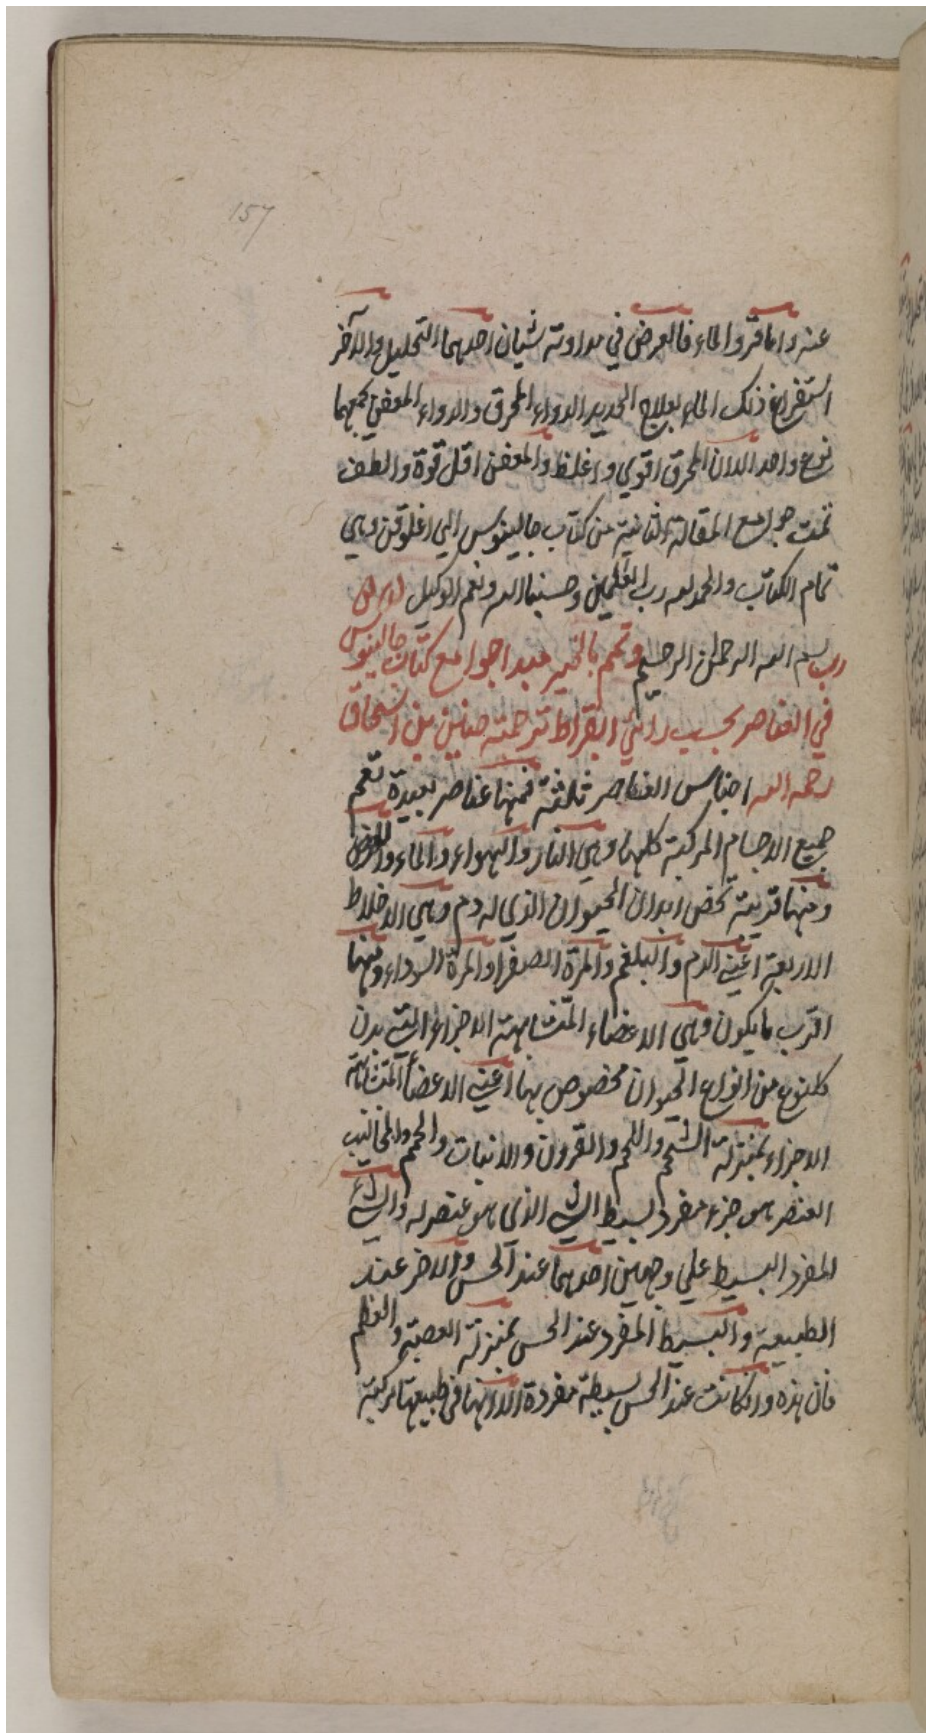 157
عنه واما قروالماء فالعرض في مداوته شيان احدهما التحليل والآخر
استفراغ ذلك الماء بعلاج الحديد الدواء المحرق والدواء المعفن يجمعهما
نوع واحد الا ان المحرق اقوي واغلظ والمعفن اقل قوة والطف
تمت جوامع المقالة الثانية من كتاب جالينوس الي اغلوقن وهي
تمام الكتاب والحمد لله رب العلمين وحسبنا الله ونعم الوكيل
رب بسم الله الرحمن الرحيم وتمم بالخير مبدا جوامع كتاب جالينوس
في العناصر بحسب رائي ابقراط ترجمته حنين بن اسحاق
رحمه الله اجناس العناصر ثلثة فمنها عناصر بعيدة تعم
جميع الاجسام المركبة كلها وهي النار والهواء والماء والارض
ومنها قريبة تخص ابدان الحيوان الذي له دم وهي الاخلاط
الاربعة اعني الدم والبلغم والمرة الصفرا والمرة السوداء ومنها
اقرب ما يكون وهي الاعضاء المتشابهة الاجزاء التي بدن
كل نوع من انواع الحيوان مخصوص بها اعني الاعضأ المتشابهة
الاجزاء بمنزلة الشحم واللحم والقرون والانياب والحمم والمخاليب
العنصر هو جزء مفرد بسيط الشي الذي هو عنصر له والشيء
المفرد البسيط علي وجهين احدهما عند الحس والاخر عند
الطبيعة والبسيط المفرد عند الحس بمنزلة العصبة والعظم
فان هذه وان كانت عند الحس بسيطة مفردة الا انها في طبيعتها مركبة